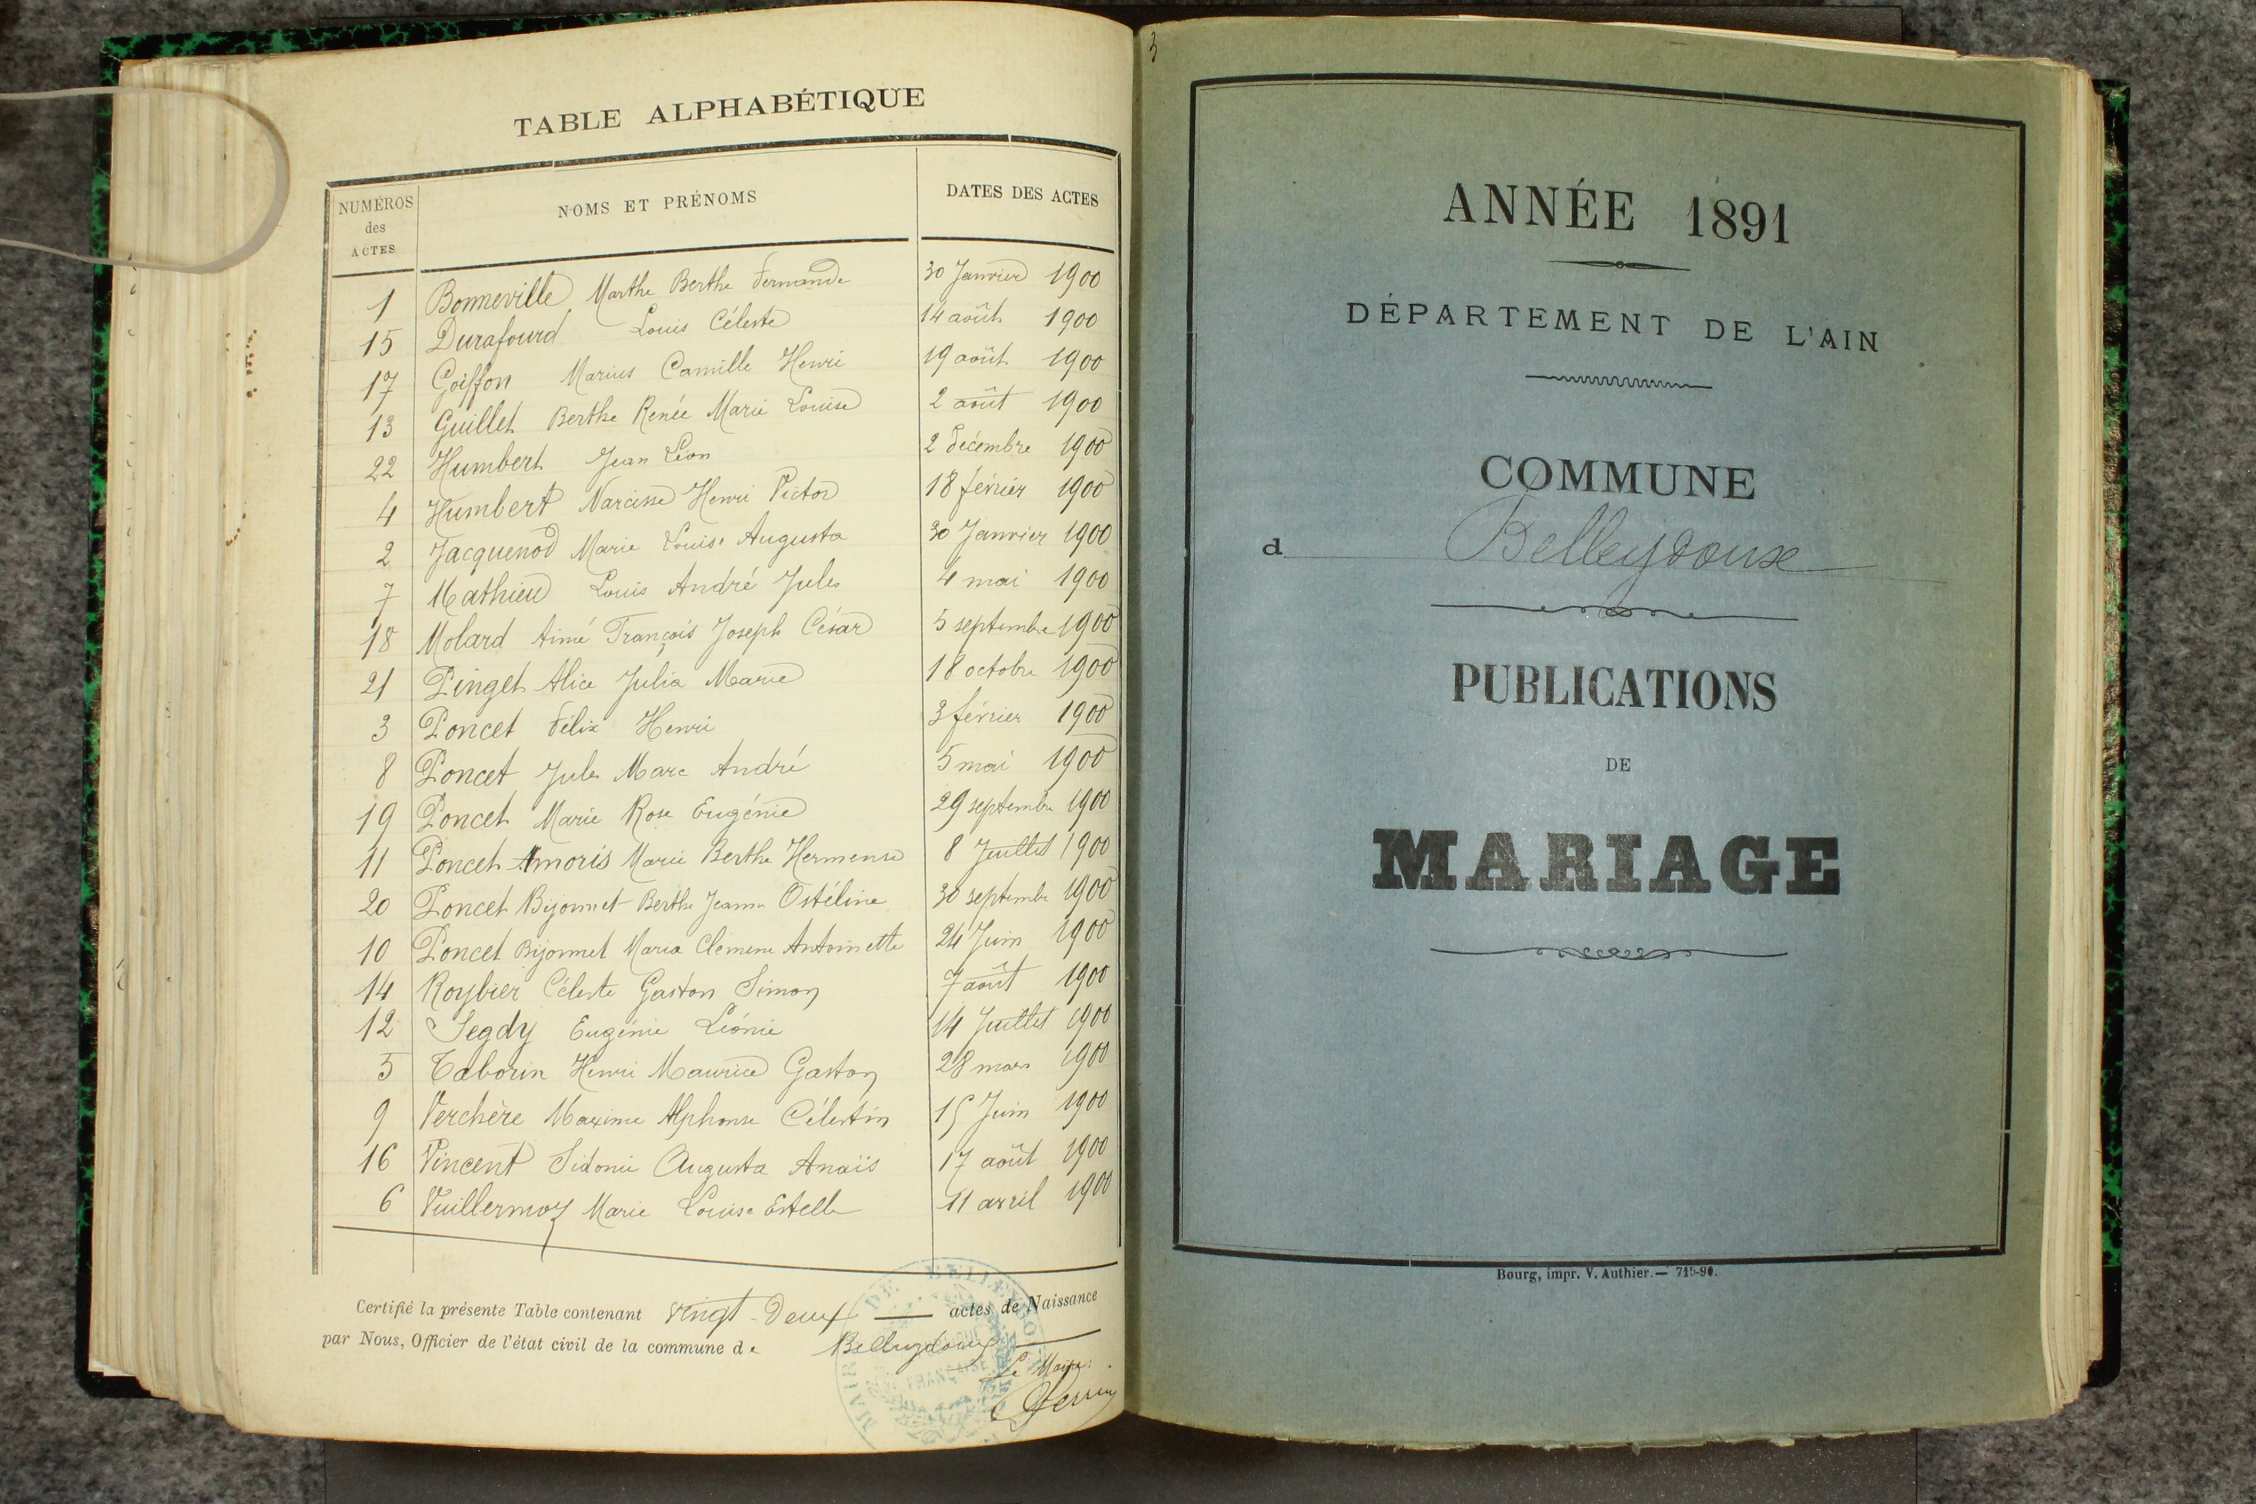 TABLE ALPHABÉTIQUE
NUMÉROS des ACTES NOMS ET PRÉNOMS DATES DES ACTES
1 Bonneville Marthe Berthe Fernande 30 Janvier 1900
15 Durafourd Louis Céleste 14 août 1900
17 Goiffon Marius Camille Henri 19 août 1900
13 Guillet Berthe Renée Marie Louise 2 août 1900
22 Humbert Jean Léon 2 décembre 1900
4 Humbert Narcisse Henri Victor 18 février 1900
2 Jacquenod Marie Louise Augusta 30 Janvier 1900
7 Mathieu Louis André Jules 4 mai 1900
18 Molard Aimé François Joseph César 5 septembre 1900
21 Pinget Alice Julia Marie 18 octobre 1900
3 Poncet Félix Henri 3 février 1900
8 Poncet Jules Marc André 5 mai 1900
19 Poncet Marie Rose Eugénie 29 septembre 1900
11 Poncet Amoris Marie Berthe Hermense 8 Juillet 1900
20 Poncet Bijonnet Berthe Jeanne Ostéline 30 septembre 1900
10 Poncet Bijonnet Maria Clémence Antoinette 24 Juin 1900
14 Roybier Céleste Gaston Simon 7 août 1900
12 Segdy Eugénie Léonie 14 Juillet 1900
5 Tabourin Henri Maurice Gaston 28 mars 1900
9 Verchère Maxime Alphonse Célestin 15 Juin 1900
16 Vincent Sidonie Augusta Anaïs 17 août 1900
6 Vuillermoz Marie Louise Estelle 11 avril 1900
Certifié la présente Table contenant vingt-deux actes de Naissance
par Nous, Officier de l'état civil de la commune de Belleydoux
Le Maire:
Perrin
3
ANNÉE 1891
DÉPARTEMENT DE L'AIN
COMMUNE
d Belleydoux
PUBLICATIONS
DE
MARIAGE
Bourg, impr. V. Authier.— 715-90.